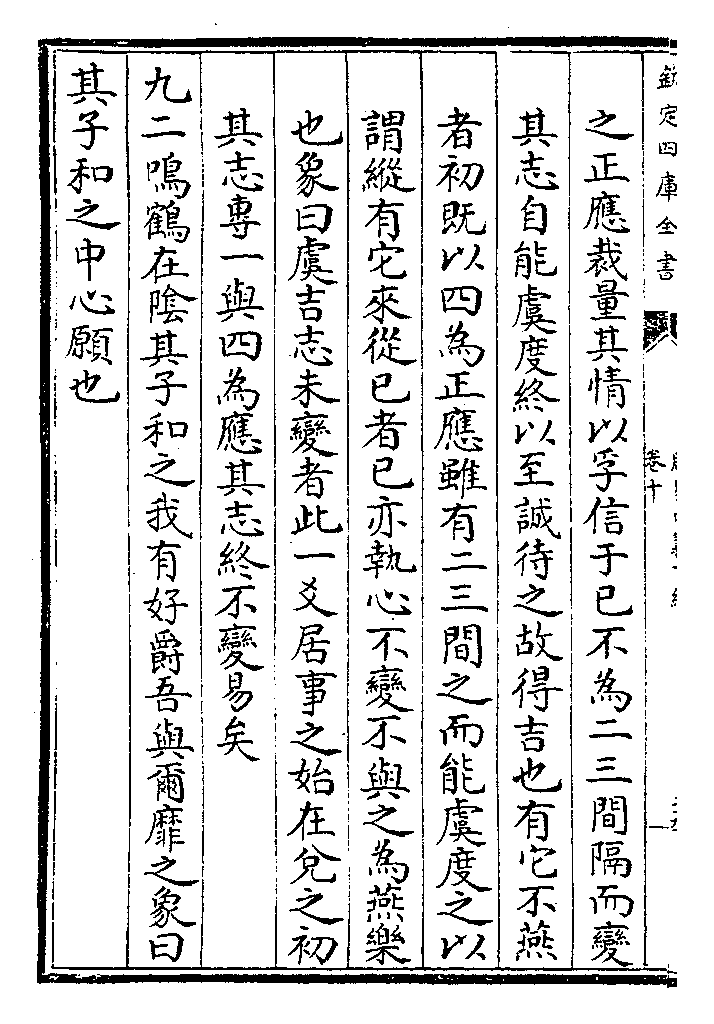 欽定四庫全書
卷十
之正應裁量其情以孚信于已不為二三間隔而變
其志自能虞度終以至誠待之故得吉也有它不燕
者初既以四為正應雖有二三間之而能虞度之以
謂縱有它來從已者已亦執心不變不與之為燕樂
也象曰虞吉志未變者此一爻居事之始在兌之初
其志專一與四為應其志終不變易矣
九二鳴鶴在陰其子和之我有好爵吾與爾靡之象曰
其子和之中心願也